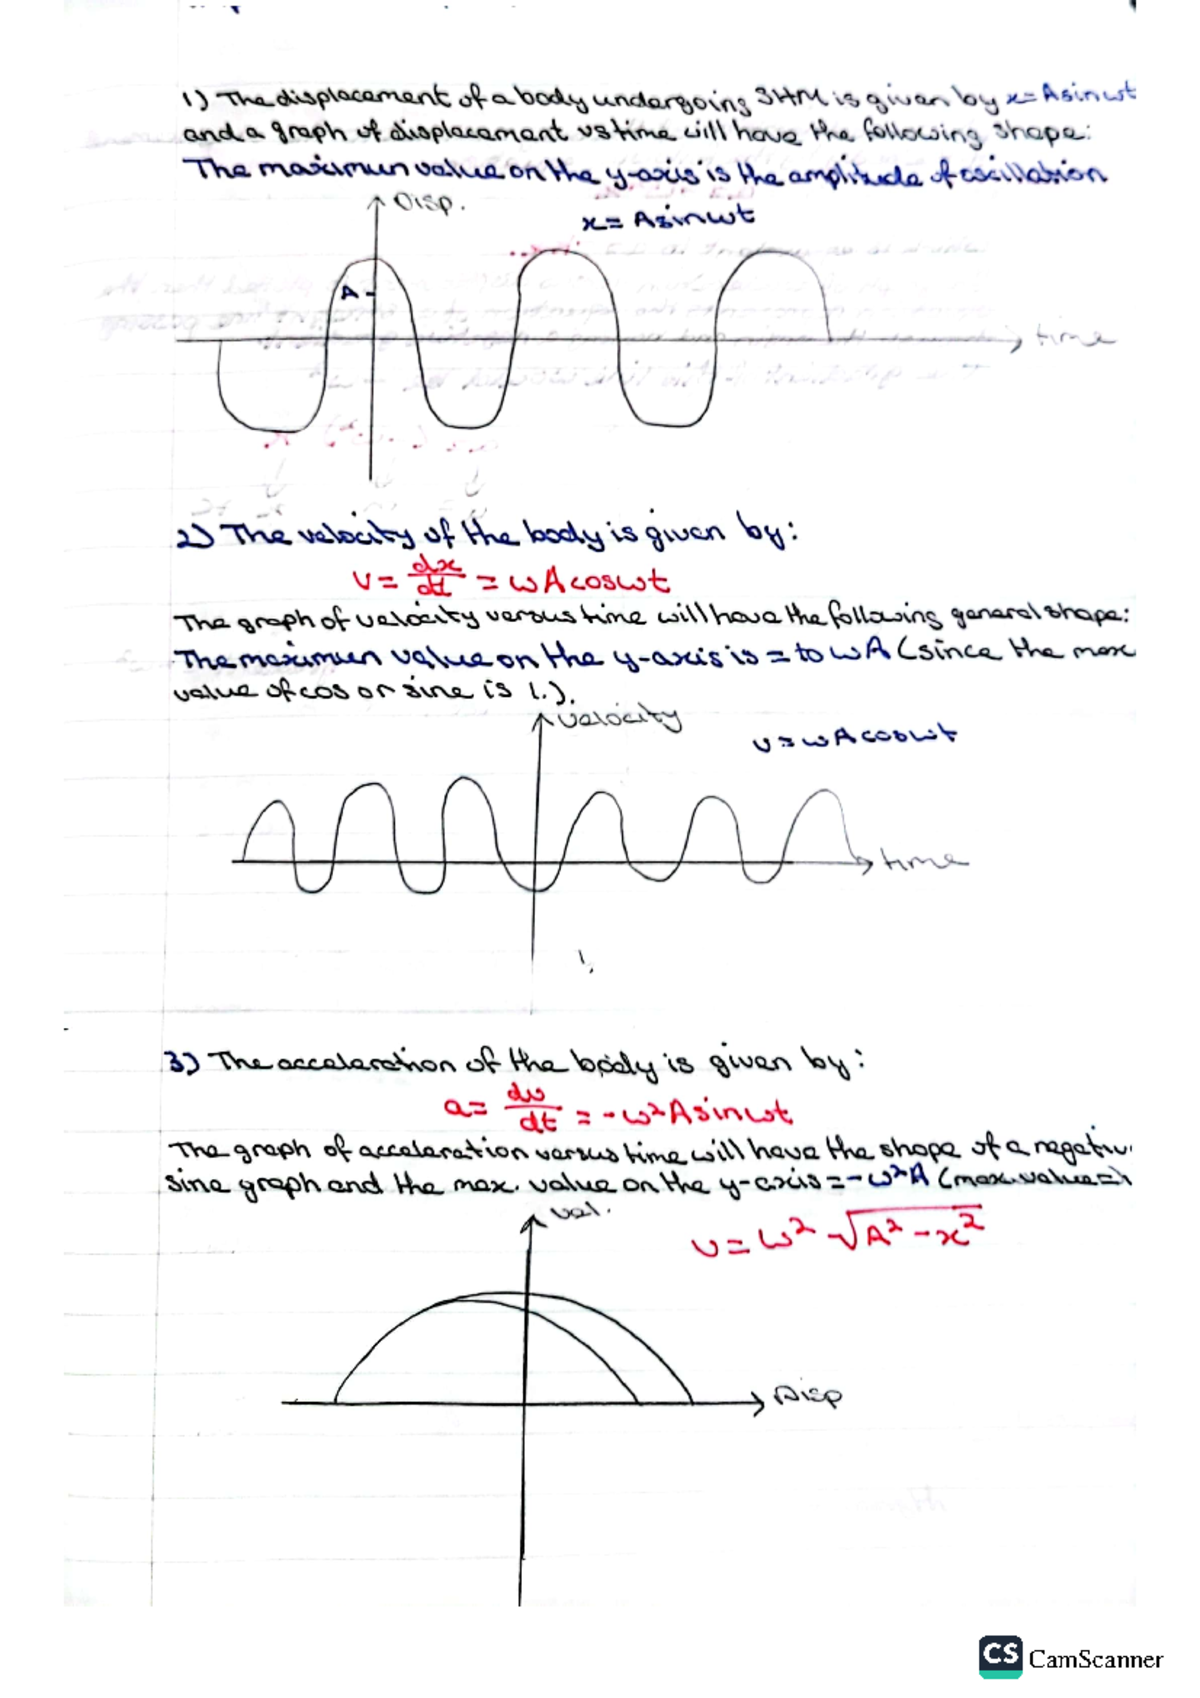 1) The displacement of a body undergoing SHM is given by x=Asinωt
and a graph of displacement vs time will have the following shape:
The maximun value on the y-axis is the amplitude of oscillation
Disp.
x= Asinωt
A
time
2) The velocity of the body is given by:
v= dx/dt = ωAcosωt
The graph of velocity versus time will have the following general shape:
The maximun value on the y-axis is = to ωA (since the max
value of cos or sine is 1.).
velocity
v=ωAcosωt
time
3) The acceleration of the body is given by:
a= dv/dt = -ω²Asinωt
The graph of acceleration versus time will have the shape of a negativ
sine graph and the max. value on the y-axis=-ω²A (max.value=1
vel.
v=ω² √A²-x²
Disp
CS CamScanner